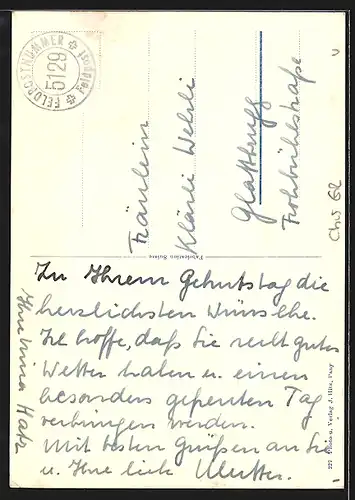 FELDPOSTNUMMER
15129
Feldpost
Fräulein
Klärli Wehrli
Glattbrugg
Frohbühlstraße
Chw 62
Fabrication Suisse
Zu Ihrem Geburtstag die
herzlichsten Wünsche.
Ich hoffe, daß Sie recht gutes
Wetter haben u. einen
besonders gefreuten Tag
verbringen werden.
Mit besten Grüßen an Sie
u. Ihre lieb Mutter.
Ihre Nina Hatz
227 Photo u. Verlag J. Hire, Pany